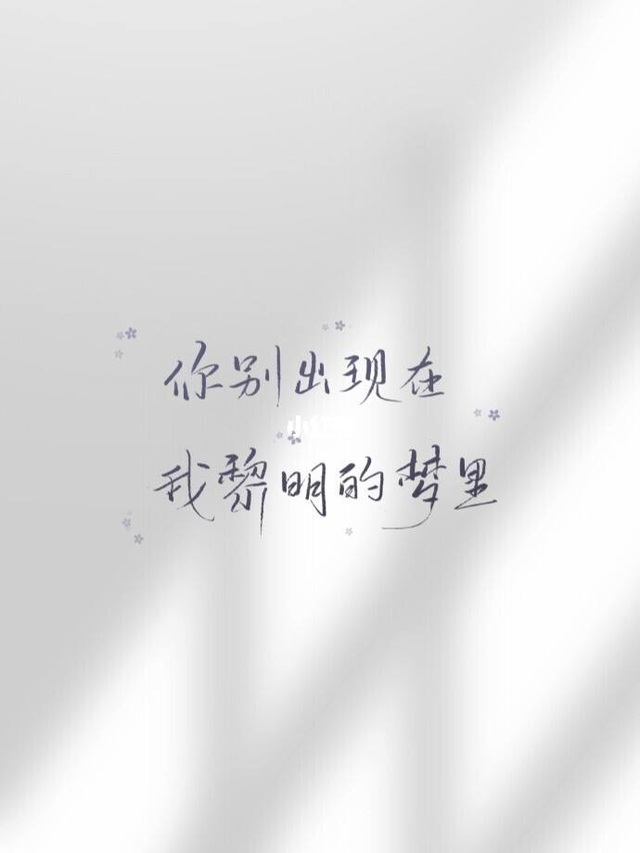 你别出现在
我黎明的梦里